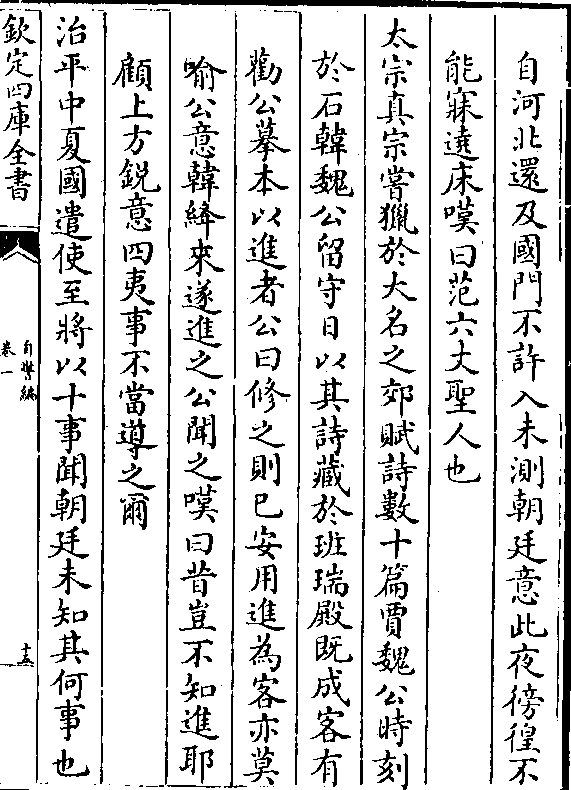 自河北還及國門不許入未測朝廷意此夜徬徨不
能寐遶床嘆曰范六丈聖人也
太宗真宗嘗獵於大名之郊賦詩數十篇賈魏公時刻
於石韓魏公留守日以其詩藏於班瑞殿既成客有
勸公摹本以進者公曰修之則已安用進為客亦莫
喻公意韓絳來遂進之公聞之嘆曰昔豈不知進耶
顧上方銳意四夷事不當導之爾
治平中夏國遣使至將以十事聞朝廷未知其何事也
欽定四庫全書
自警編
卷一
十五